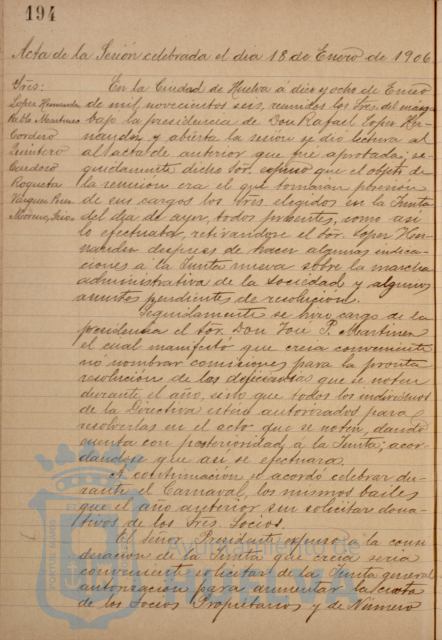 194
Acta de la Sesión celebrada el dia 18 de Enero de 1906.
Sres:
Lopez Hernandez
Martinez
Cordero
Quintero
Cordero
Roqueta
Vazquez
Moreno,
En la Ciudad de Huelva á diez y ocho de Enero
de mil novecientos seis, reunidos los Sres. del margen
bajo la presidencia de Don Rafael Lopez Her-
nandez y abierta la sesión se dió lectura al
al acta de anterior que fué aprobada; se-
guidamente dicho Sor. expuso que el objeto de
la reunion era el que tomaran posesión
de sus cargos los Sres elegidos en la Junta
del dia de ayer, todos presentes, como asi
lo efectuaron, retirandose el Sor. Lopez Her-
nandez despues de hacer algunas indica-
ciones á la Junta nueva sobre la marcha
administrativa de la sociedad y algunos
asuntos pendientes de resolución.
Seguidamente se hizo cargo de la
presidencia el Sor Don José P. Martinez
el cual manifestó que creia conveniente
nó nombrar comisiones para la pronta
resolución de las deficiencias que se noten
durante el año, sinó que todos los individuos
de la Directiva esten autorizados para
resolverlas en el acto que se noten, dando
cuenta con posterioridad á la Junta; acor-
dandose que asi se efectuara.
A continuación se acordo celebrar du-
rante el Carnaval, los mismos bailes
que el año anterior sin solicitar dona-
tivos de los Sres. Socios.
El Señor Presidente expuso á la consi-
deracion de la Junta que creia seria
conveniente solicitar de la Junta general
autorización para aumentar la cuota
de los Socios Propietarios y de Número
Ayuntamiento de
HUELVA